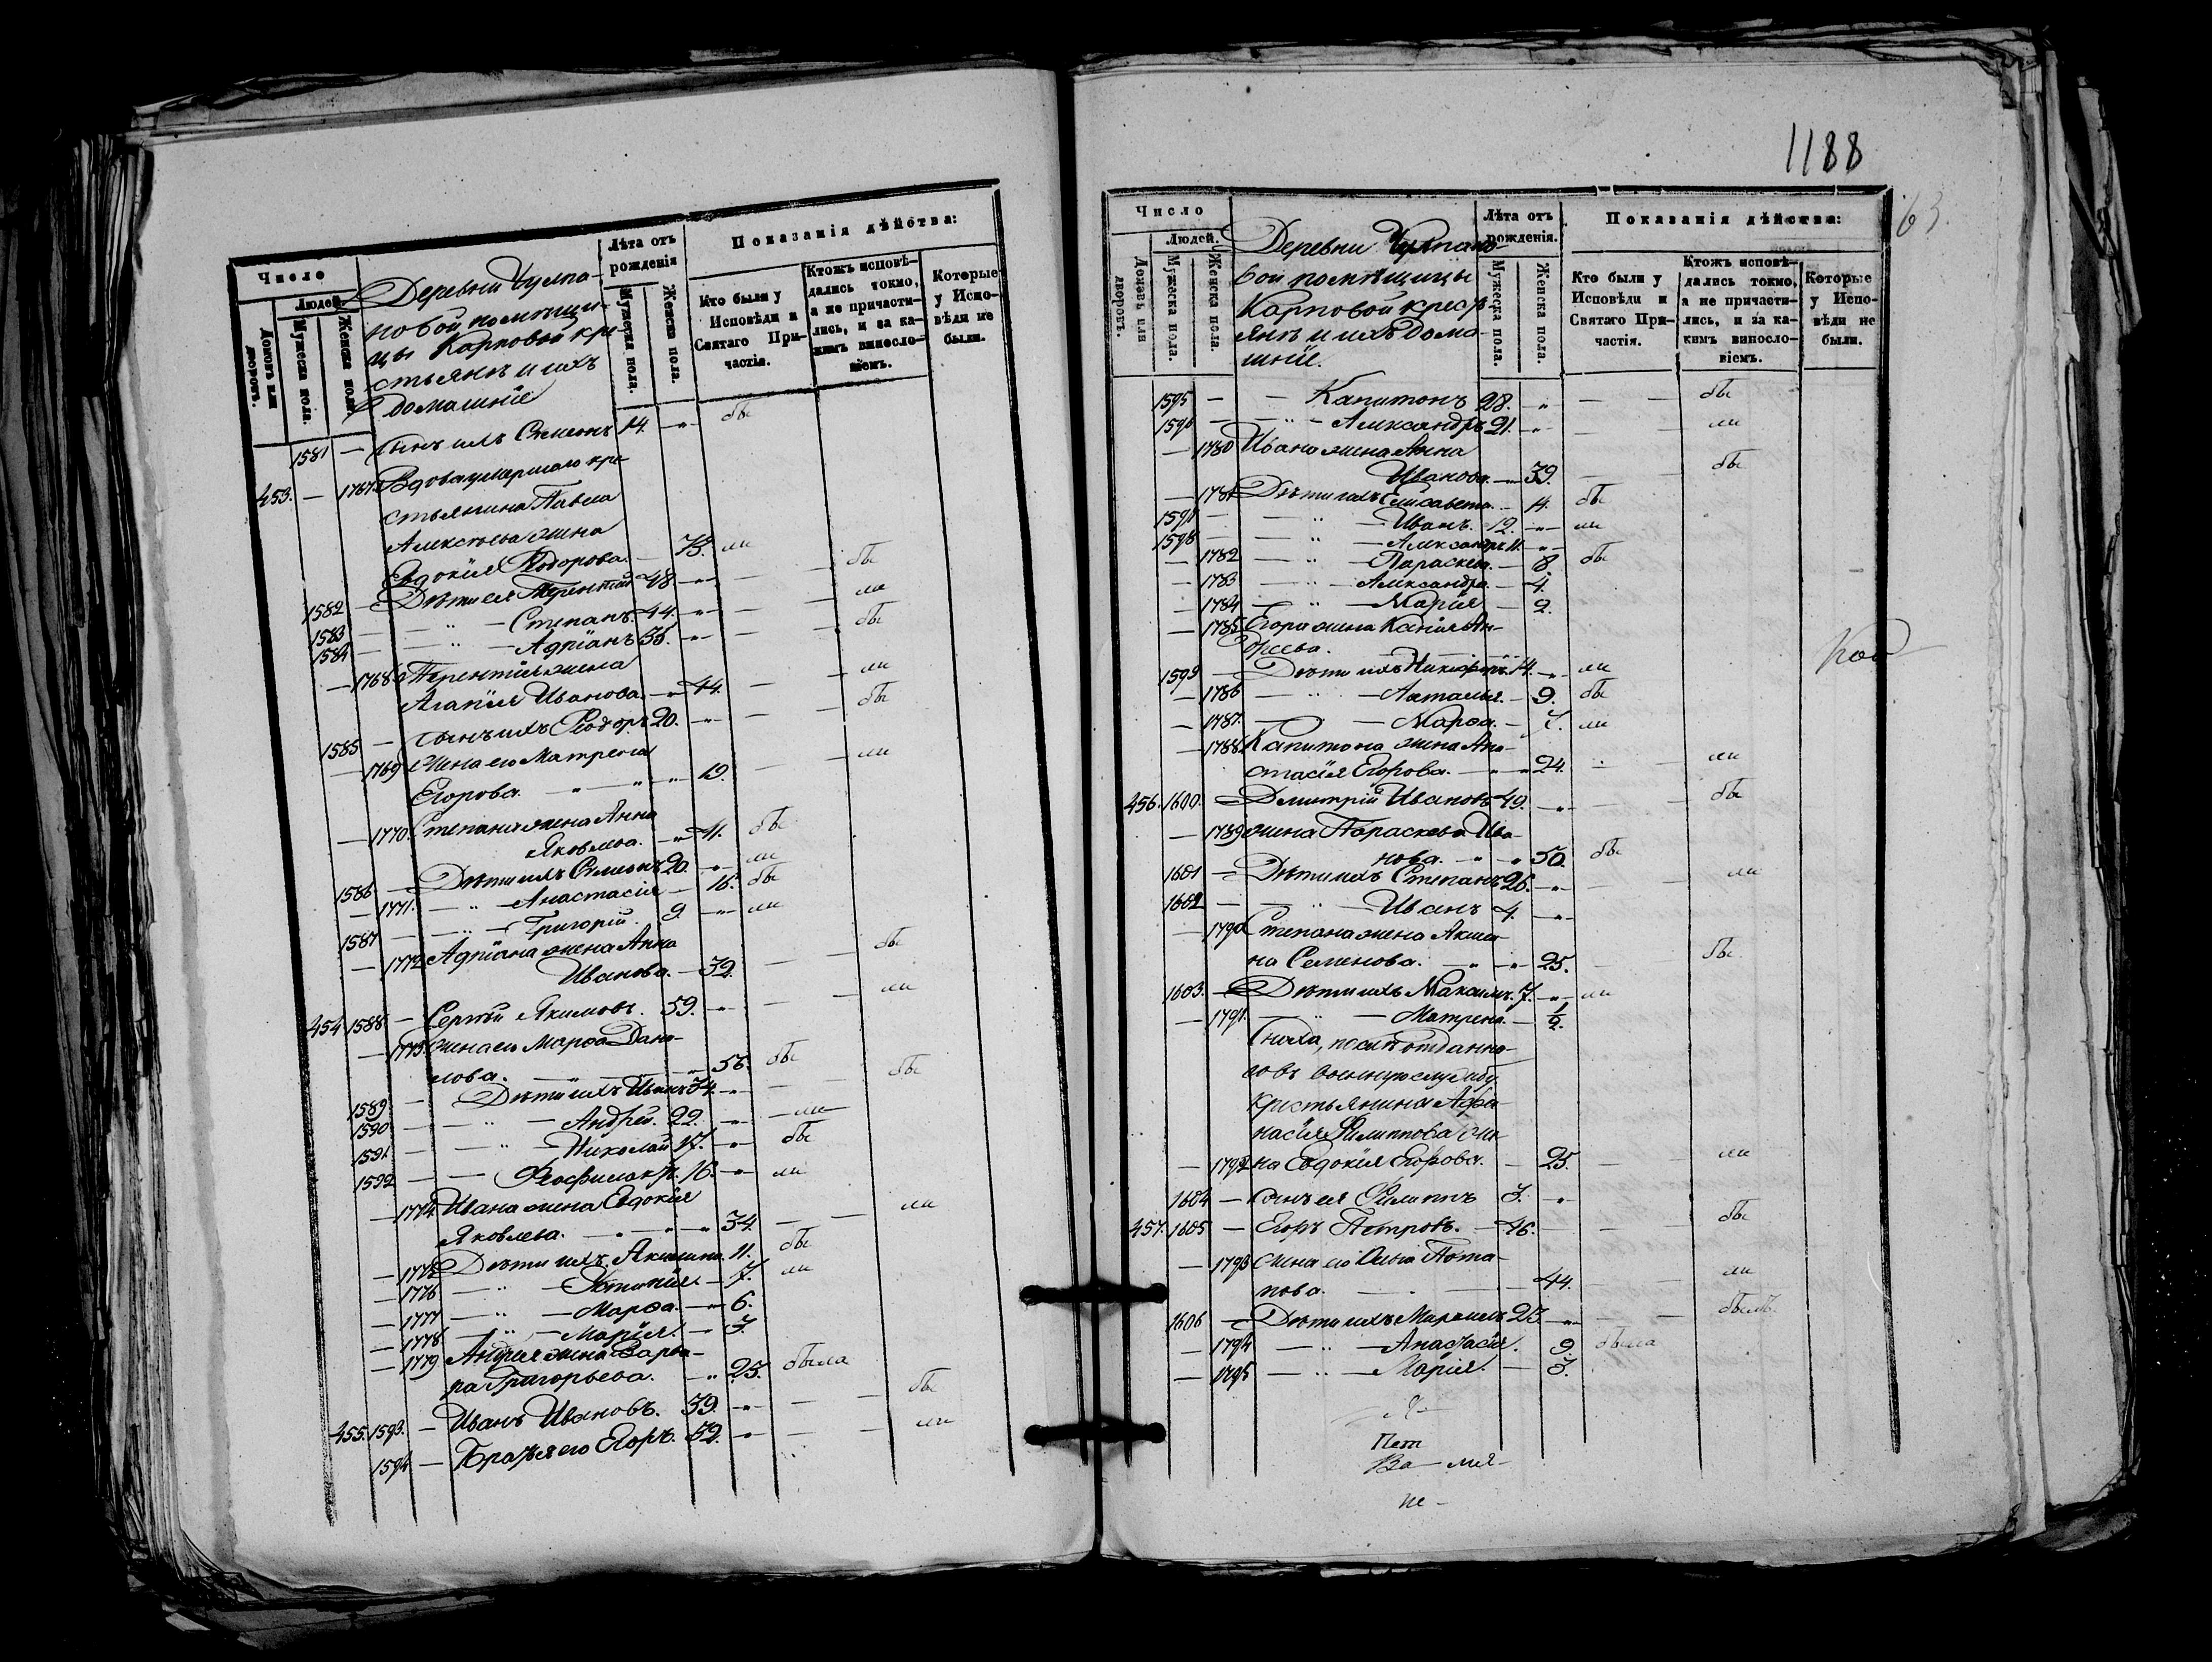 Число
Людей.
Домовъ или дворовъ.
Мужеска пола.
Женска пола.
Деревни Чулпа-
новой помѣщи-
цы Карповой кре-
стьянъ и ихъ
домашніе
Лѣта отъ рожденія
Мужеска пола.
Женска пола.
Показанія дѣйства:
Кто были у Исповѣди и Святаго При-частія.
Ктожъ исповѣ-дались токмо, а не причасти-лись, и за ка-кимъ винословіемъ.
Которые у Испо-вѣди не были.
1581 — Сынъ ихъ Симеонъ 14. — бы
453. — 1767 Вдова умершаго кре-
стьянина Павла
Алексѣева жена
Евдокія Ѳеодорова. — 73. ли
1582 — Дѣти ея Терентій 48 — — бы
1583 — — " — Степанъ. 44. — — ли
1584 — — " — Адріанъ 35. — — бы
— 1768 Терентія жена
Агапія Иванова. — 44. — ли
1585 — Сынъ ихъ Ѳеодоръ 20. — — бы
— 1769 Жена его Матрена
Егорова. — " — " — 19. — ли
— 1770. Степана жена Анна
Яковлева. — " 41. бы
1586 — Дѣти ихъ Симеонъ 20. — ли
— 1771. — " — Анастасія — 16. бы
1587 — — " — Григорій. 9. — ли
— 1772 Адріана жена Анна
Иванова. — 32. — бы
454. 1588 — Сергѣй Якимовъ. 59. — — ли
— 1773. Жена его Марѳа Дани-
лова. — " — 56. бы
1589 — Дѣти ихъ Иванъ 34. — — бы
1590 — — " — Андрей. 22. — — ли
1591 — — " — Николай 17. — бы
1592 — — — Ѳеофилактъ. 16. — ли
— 1774. Ивана жена Евдокія
Яковлева. — " — " 34. — ли
— 1775 Дѣти ихъ Акилина. 11. бы
— 1776 — " — Устинія — 7. ли
— 1777 — " — Марѳа. — 6.
— 1778 — " — Марія. — 3.
— 1779 Андрея жена Варва-
ра Григорьева. — " 25. была
455. 1593. — Иванъ Ивановъ. 39. — — бы
1594 — Братья его Егоръ. 32. — — ли
1188
63.
Число
Людей.
Домовъ или дворовъ.
Мужеска пола.
Женска пола.
Деревни Чулпано-
вой помѣщицы
Карповой крестья-
янъ и ихъ дома-
шніе.
Лѣта отъ рожденія.
Мужеска пола.
Женска пола.
Показанія дѣйства:
Кто были у Исповѣди и Святаго При-частія.
Ктожъ исповѣ-дались токмо, а не причасти-лись, и за ка-кимъ винослo-віемъ.
Которые у Испо-вѣди не были.
1595 — — Капитонъ 28. " — — бы
1596 — " — Александръ 21. " — — ли
— 1780 Ивана жена Анна
Иванова. — 39. — бы
— 1781 Дѣти ихъ Елисавета. — 14. бы
1597 — — " — Иванъ. 12. — ли
1598 — — " — Александръ 11. —
— 1782 — " — Параскева. — 8 бы
— 1783 — " — Александра. — 4.
— 1784 — " — Марія — 2.
— 1785 Егора жена Ан-
дреева.
1599 — Дѣти ихъ Никифоръ. 14. — ли
— 1786 — " — Наталья. — 9. бы
— 1787. — " — Марѳа. — 7. ли
— 1788 Капитона жена Ана-
стасія Егорова. — " — 24. — ли
456. 1600. — Димитрій Ивановъ 49. — — бы
— 1789 жена Параскева Ива-
нова. — " — " 50. бы
1601 — Дѣти ихъ Степанъ 26. — — ли
1602 — — " — Иванъ 4. —
— 1790 Степана жена Акили-
на Семенова. — " — " 25. — бы
1603. — Дѣти ихъ Максимъ. 7. — ли
— 1791. — " — Матрена. — 1/2.
Сноха,
въ военную службу
крестьянина Аѳа-
насія Филиппова же-
— 1792 на Евдокія Егорова. — 25. — ли
1604 — Сынъ ея Филиппъ 3. "
457. 1605 — Егоръ Петровъ. — 46. — — бы
— 1793 Жена его Ольга Пота-
пова. — " — 44. — ли
1606 — Дѣти ихъ 23. — — былъ.
— 1794 — " — Анастасія. 9. была
— 1795 — " — Марія. — 3.
Пет
Ва — лия
не —